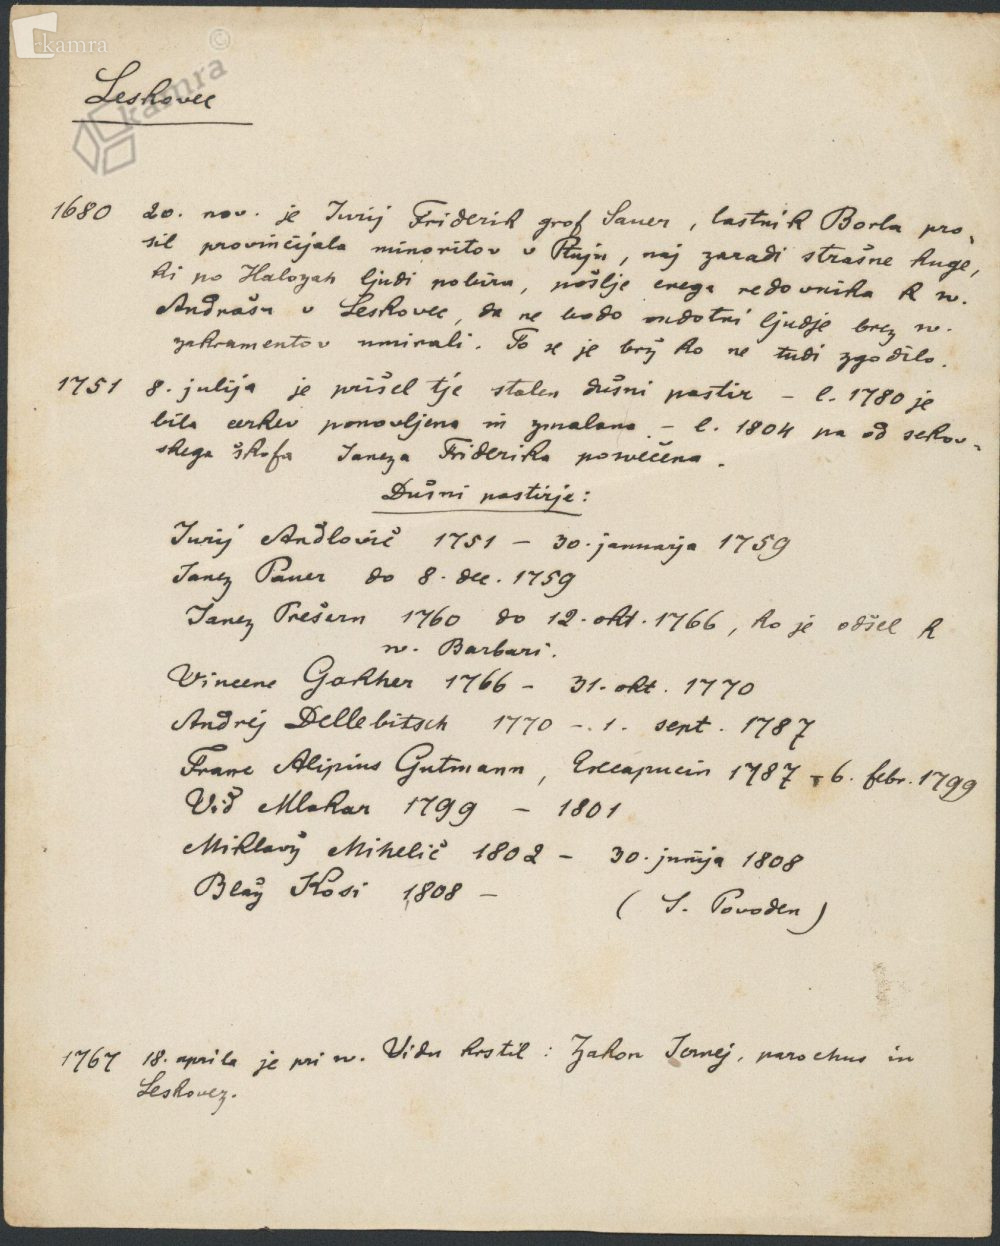 kamra
©
kamra
Leskovec
1680 20. nov. je Jurij Friderik grof Sauer, lastnik Borla pro-
sil provincijala minoritov v Ptuju, naj zaradi strašne kuge,
ki po Halozah ljudi pobira, pošlje enega redovnika k sv.
Andražu v Leskovec, da ne bodo ondotni ljudje brez sv.
zakramentov umirali. To se je brž ko ne tudi zgodilo.
1751 8. julija je prišel tje stalen dušni pastir – l. 1780 je
bila cerkev ponovljena in zmalana – l. 1804 pa od sekov-
skega škofa Janeza Friderika posvečena.
Dušni pastirje:
Jurij Andlovič 1751 – 30. januarja 1759
Janez Pauer do 8. dec. 1759
Janez Prešern 1760 do 12. okt. 1766, ko je odšel k
sv. Barbari.
Vincenc Gakher 1766 – 31. okt. 1770
Andrej Dellebitsch 1770 – 1. sept. 1787
Franc Alipius Gutmann, Excapucin 1787 – 6. febr. 1799
Vid Mlakar 1799 – 1801
Miklavž Mihelič 1802 – 30. junija 1808
Blaž Kosi 1808 – (S. Povoden)
1767 18. aprila je pri sv. Vidu krstil: Zakon Jernej, parochus in
Leskovez.